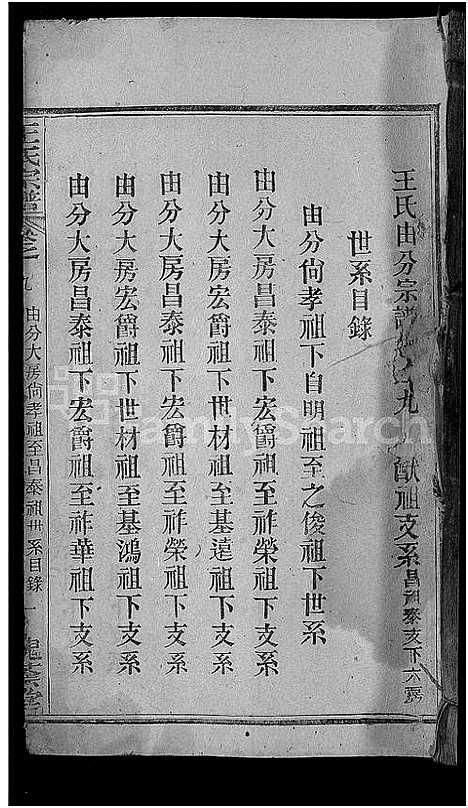 王氏由分宗譜卷之九 猷祖支系昌泰祖支下六房
世系目錄
由分尙孝祖下自明祖至之俊祖下世系
由分大房昌泰祖下宏爵祖至祚榮祖下支系
由分大房宏爵祖下世材祖至基遠祖下支系
由分大房昌泰祖下宏爵祖至祚榮祖下支系
由分大房宏爵祖下世材祖至基鴻祖下支系
由分大房昌泰祖下宏爵祖至祚華祖下支系
王氏宗譜 卷之九 由分大房尙孝祖至昌泰祖世系目錄 一 槐蔭堂
FamilySearch